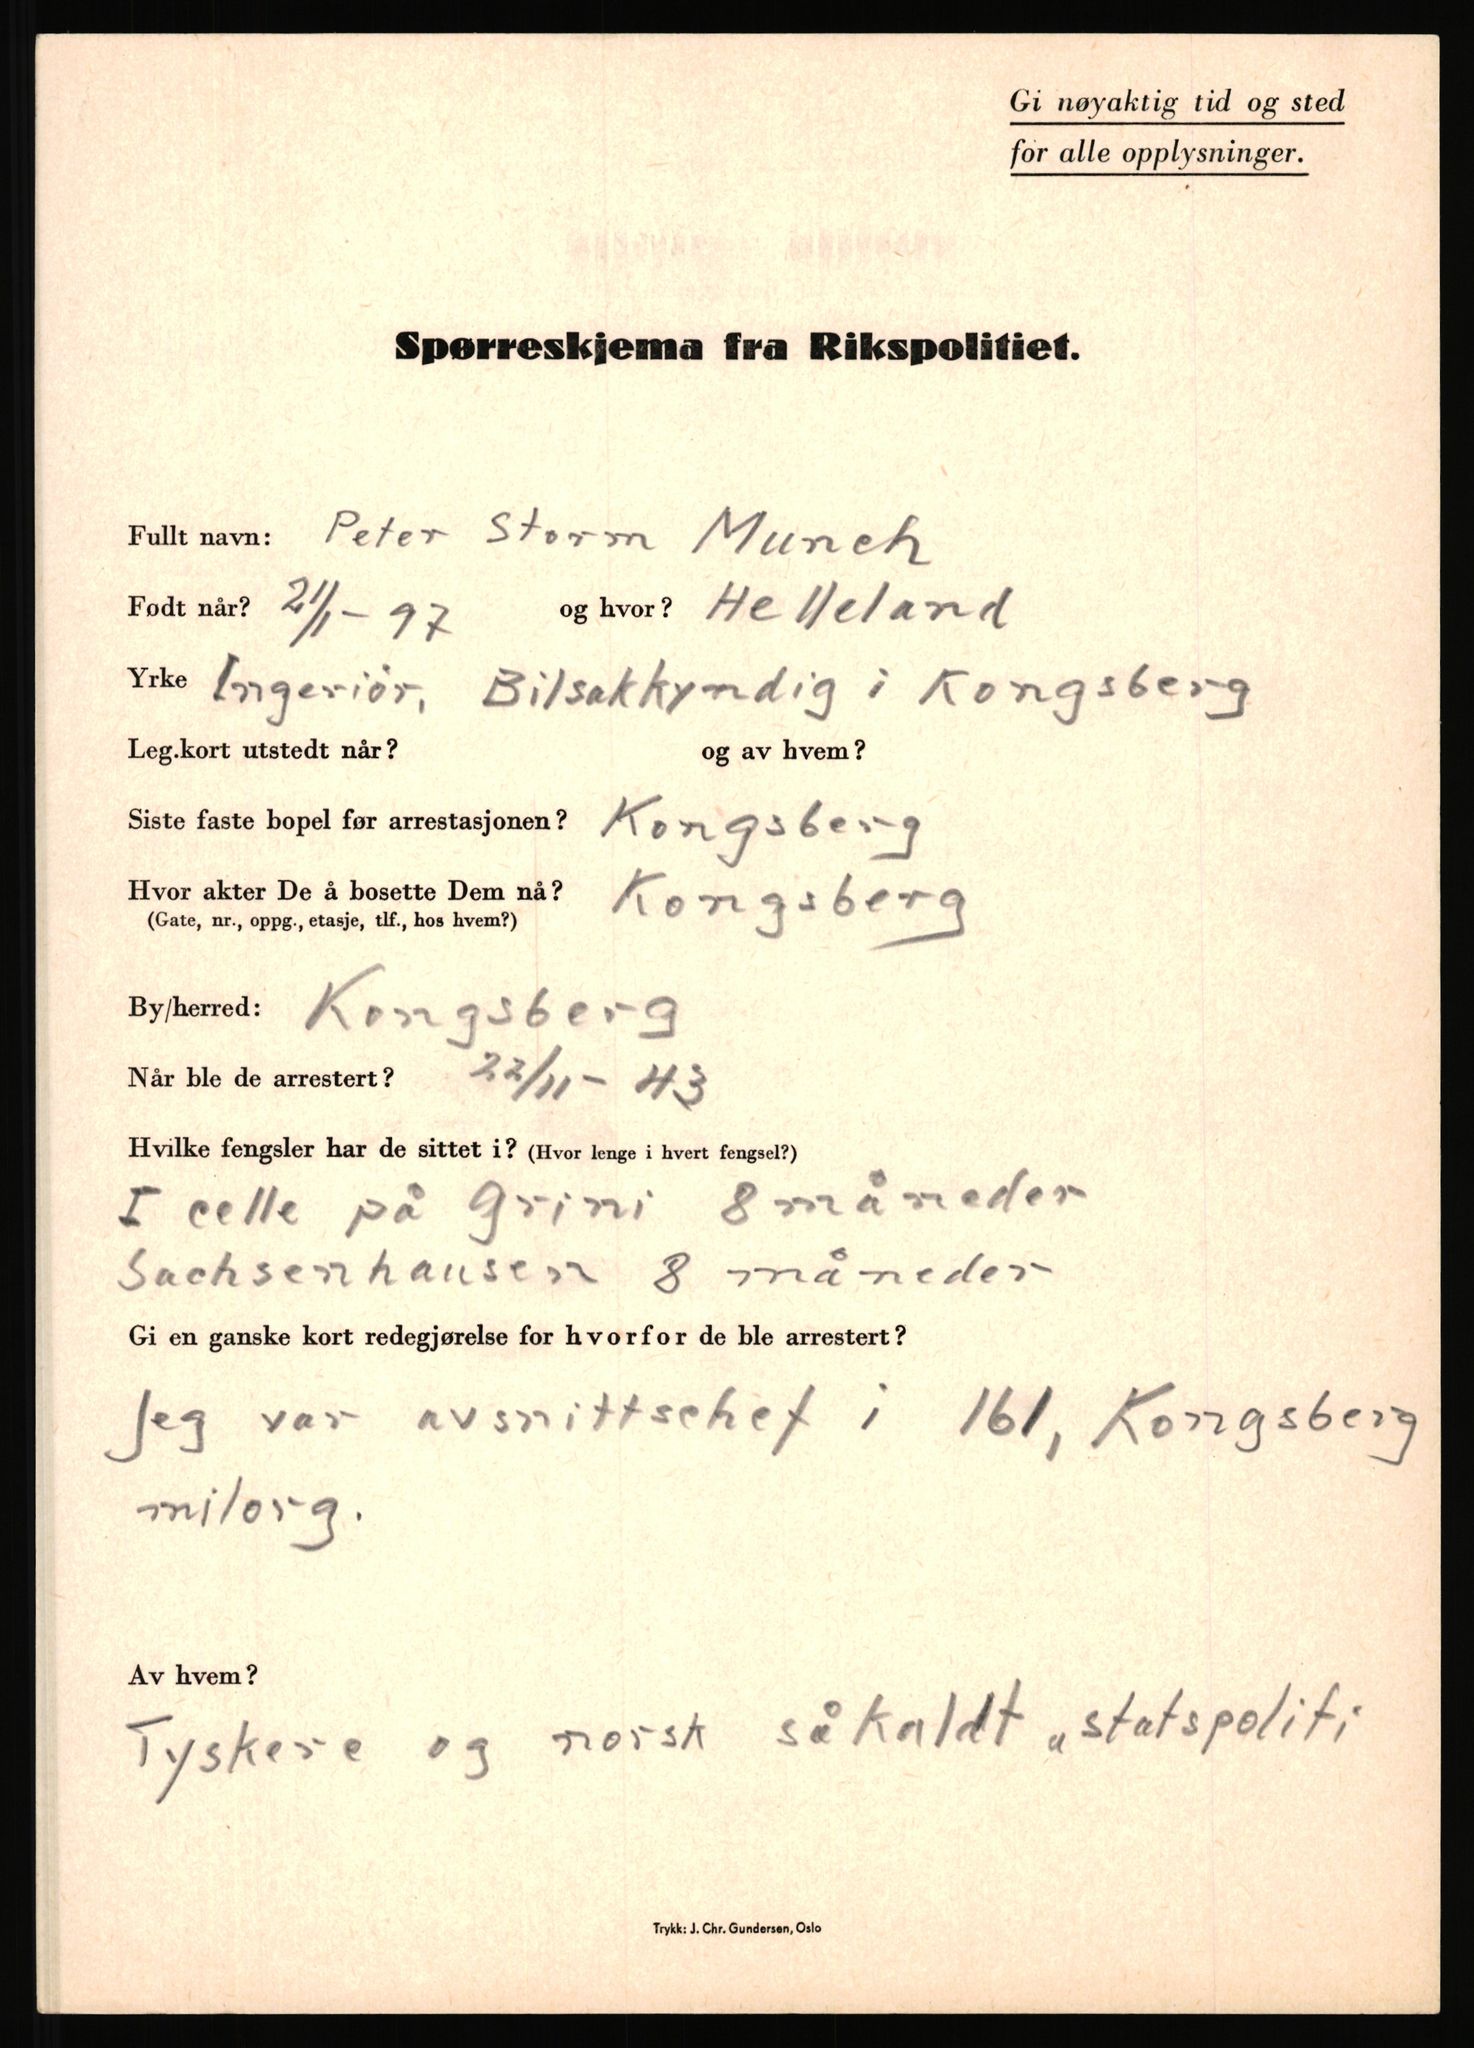 Gi nøyaktig tid og sted
for alle opplysninger.
Spørreskjema fra Rikspolitiet.
Fullt navn: Peter Storm Munch
Født når? 21/1 - 97 og hvor? Helleland
Yrke Ingeniör, Bilsakkyndig i Kongsberg
Leg.kort utstedt når? og av hvem?
Siste faste bopel før arrestasjonen? Kongsberg
Hvor akter De å bosette Dem nå? Kongsberg
(Gate, nr., oppg., etasje, tlf., hos hvem?)
By/herred: Kongsberg
Når ble de arrestert? 22/11 - 43
Hvilke fengsler har de sittet i? (Hvor lenge i hvert fengsel?)
I celle på Grini 8 måneder
Sachsenhausen 8 måneder
Gi en ganske kort redegjørelse for hvorfor de ble arrestert?
Jeg var avsnittschef i 161, Kongsberg
milorg.
Av hvem?
Tyskere og norsk såkaldt „statspoliti
Trykk: J. Chr. Gundersen, Oslo